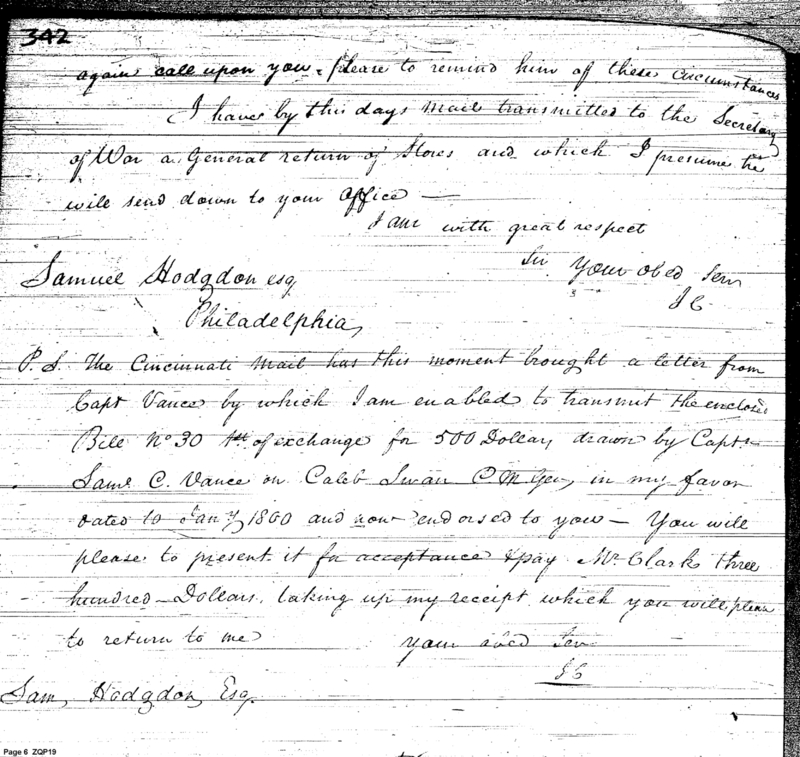 342
again call upon you - please to remind him of these circumstances
I have by this days mail transmitted to the Secretary
of War a General return of Stores and which I presume he
will send down to your Office —
I am with great respect
Sir your obed Serv
I C
Samuel Hodgdon esq
Philadelphia,
P. S. The Cincinnati Mail has this moment brought a letter from
Capt Vance by which I am enabled to transmit the enclosed
Bill No 30 1st of exchange for 500 Dollars drawn by Capt
Saml C. Vance on Caleb Swan P M Gen, in my favor
dated 10 Jany 1800 and now endorsed to you — You will
please to present it for acceptance & pay Mr Clark three
hundred Dollars, taking up my receipt which you will please
to return to me
your obed Serv
I C
Sam, Hodgdon, Esq.
Page 6 ZQP19